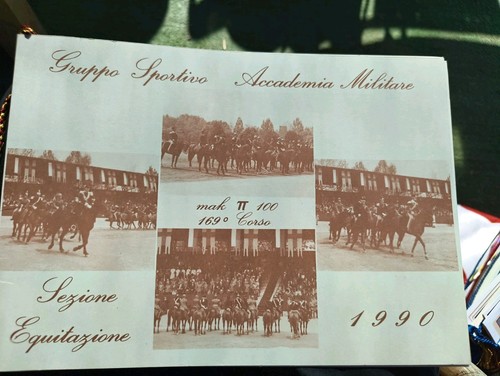 Gruppo Sportivo Accademia Militare
mak π 100
169° Corso
Sezione
Equitazione
1990